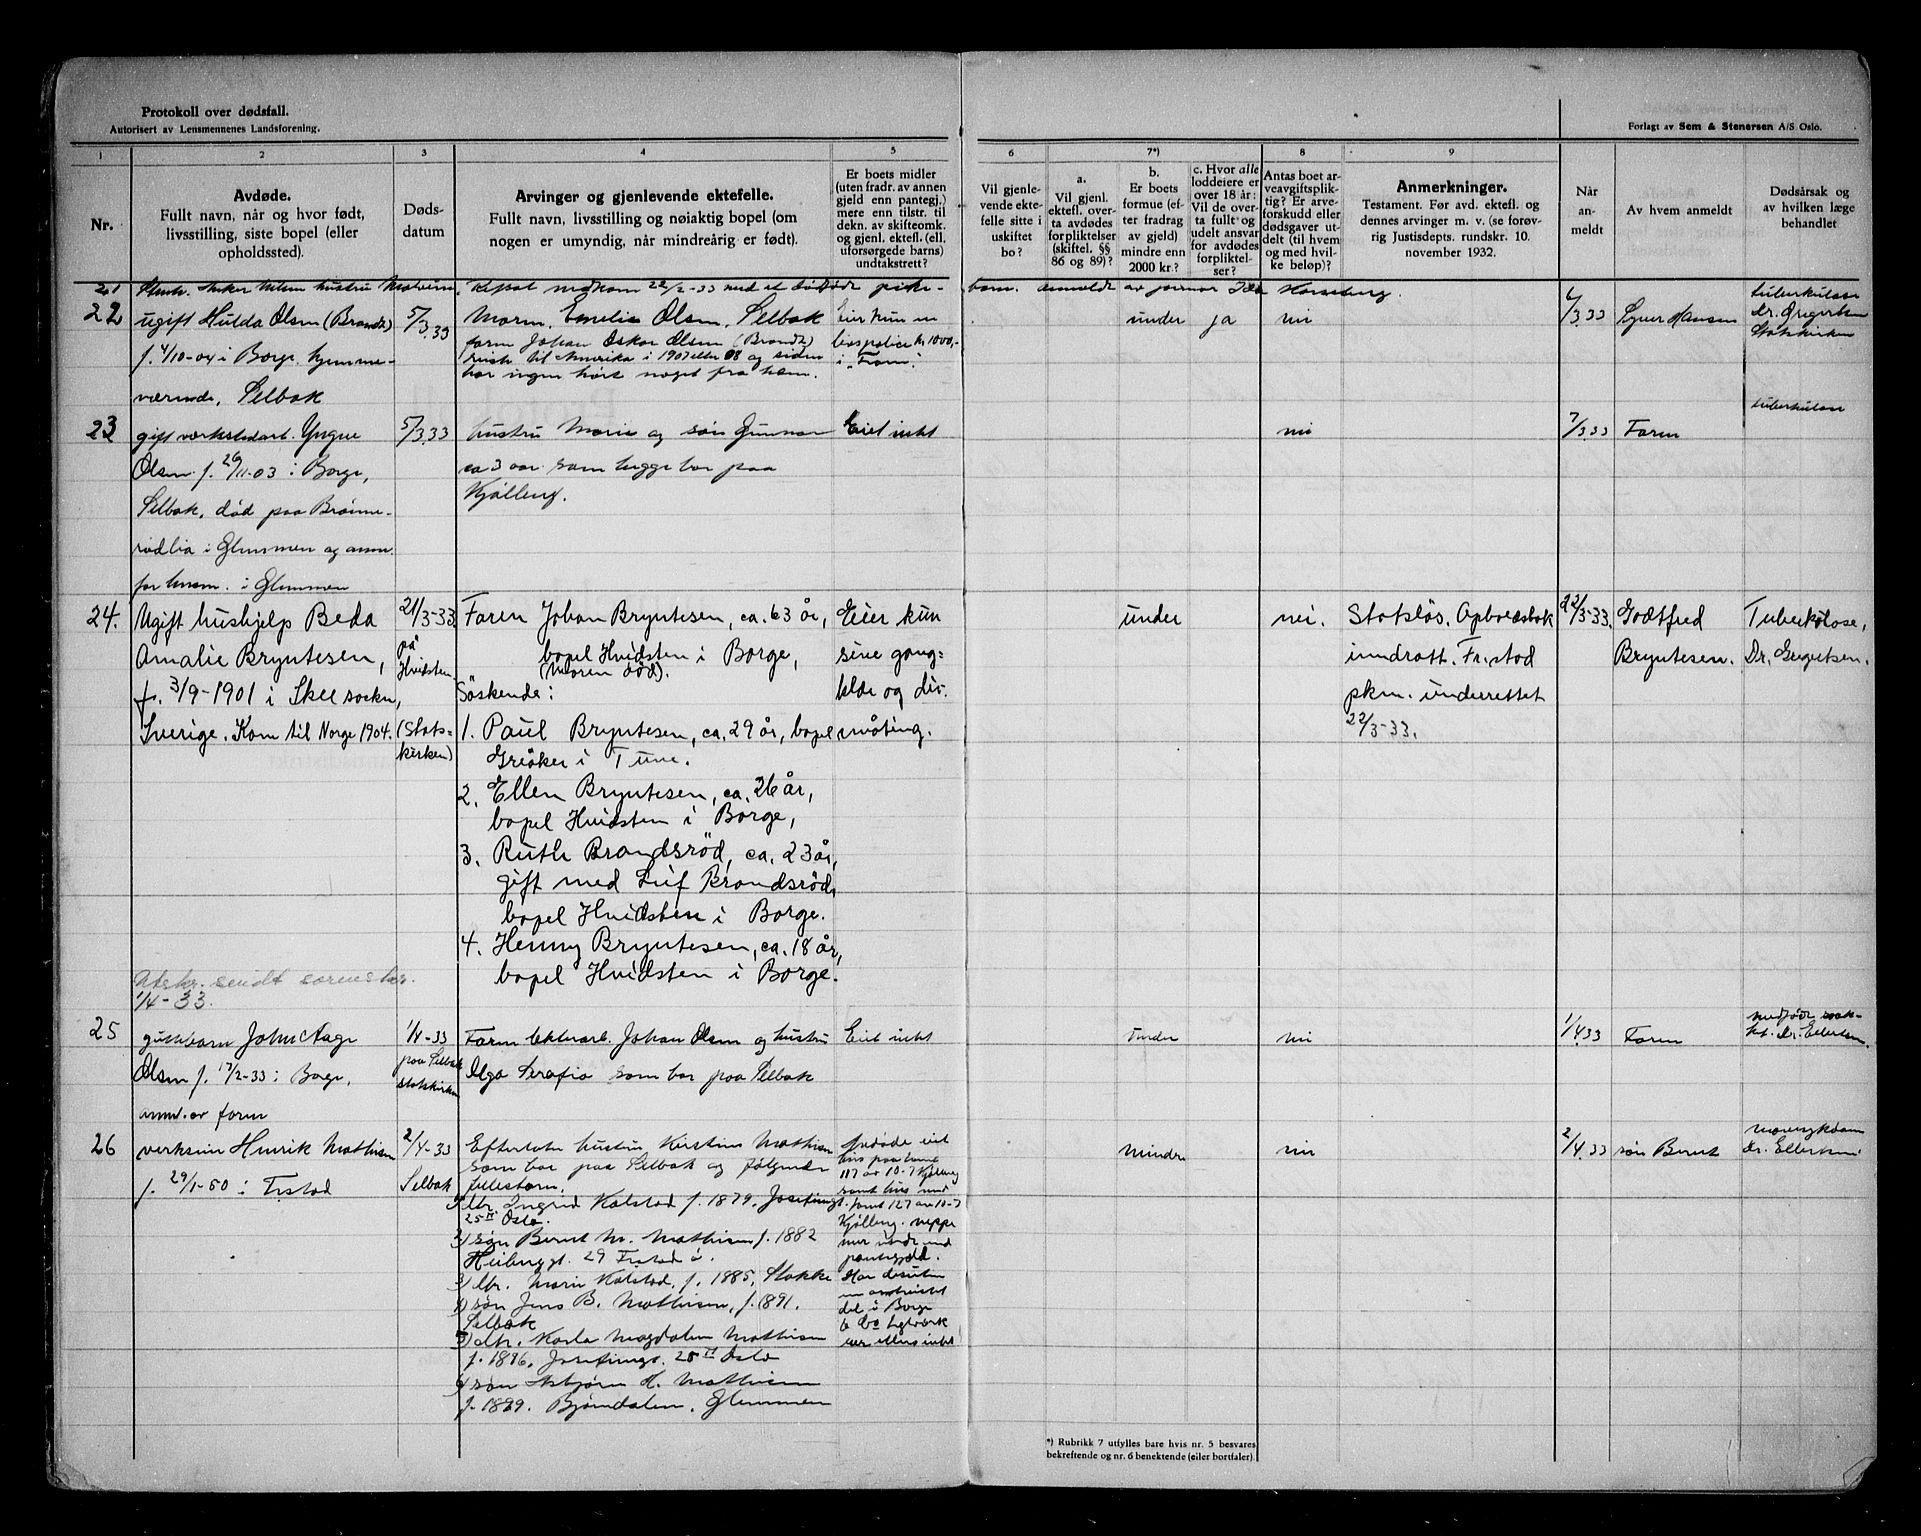 Protokoll over dødsfall.
Autorisert av Lensmennenes Landsforening.
Forlagt av Sem & Stenersen A/S Oslo.
1 2 3 4 5 6 7*) 8 9
Nr.
Avdøde.
Fullt navn, når og hvor født,
livsstilling, siste bopel (eller
opholdssted).
Døds-
datum
Arvinger og gjenlevende ektefelle.
Fullt navn, livsstilling og nøiaktig bopel (om
nogen er umyndig, når mindreårig er født).
Er boets midler
(uten fradr. av annen
gjeld enn pantegj.)
mere enn tilstr. til
dekn. av skifteomk.
og gjenl. ektefl. (ell.
uforsørgede barns)
undtakstrett?
Vil gjenle-
vende ekte-
felle sitte i
uskiftet
bo?
a.
Vil gjenl.
ektefl. over-
ta avdødes
forpliktelser
(skiftel. §§
86 og 89)?
b.
Er boets
formue (ef-
ter fradrag
av gjeld)
mindre enn
2000 kr.?
c. Hvor alle
loddeiere er
over 18 år:
Vil de over-
ta fullt og
udelt ansvar
for avdødes
forpliktel-
ser?
Antas boet ar-
veavgiftsplik-
tig? Er arve-
forskudd eller
dødsgaver ut-
delt (til hvem
og med hvil-
ke beløp)?
Anmerkninger.
Testament. Før avd. ektefl. og
dennes arvinger m. v. (se forøv-
rig Justisdepts. rundskr. 10.
november 1932.
Når
an-
meldt
Av hvem anmeldt
Dødsårsak og
av hvilken læge
behandlet
21
nedkom 22/2-33 med et dødfødt pike-
barn. anmeldt av jormor Ida
22
ugift Hulda Olsen (Brandt)
f. 4/10-04 i Borge. hjemme-
værende, Selbak
5/3.33
Moren, Emelie Olsen, Selbak
faren Johan Oskar Olsen (Brandt)
reiste til Amerika i 1907 eller 08 og siden
har ingen hørt noget fra ham.
Eier kun en
livspolice kr 1000,-
i "Fram".
under
ja
nei
6/3.33
Hansen
tuberkulose
Dr. Gregertsen
Statskirken
23
gift verkstedarb. Yngve
Olsen f. 26/11-03 i Borge,
Selbak, død paa Brønne-
rødlia i Glemmen og anm.
for lensm. i Glemmen
5/3.33
hustru Marie og søn Gunnar
ca 3 aar som begge bor paa
Kjølberg.
Eiet intet
nei
7/3.33
Faren
tuberkulose
24.
Ugift hushjelp Beda
Amalie Bryntesen,
f. 3/9-1901 i Skee socken,
Sverige. Kom til Norge 1904.
21/3-33.
på
Hvidsten
(Stats-
kirken)
Faren Johan Bryntesen, ca. 63 år,
bopel Hvidsten i Borge,
(Moren død).
Søskende:
1. Paul Bryntesen, ca. 29 år, bopel
Greåker i Tune.
2. Ellen Bryntesen, ca. 26 år,
bopel Hvidsten i Borge,
3. Ruth Brandsrød, ca. 23 år,
gift med Leif Brandsrød,
bopel Hvidsten i Borge.
4. Henny Bryntesen, ca. 18 år,
bopel Hvidsten i Borge.
Eier kun
sine gang-
klær og div.
småting.
under
nei.
Statsløs. Opholdsbok
inndratt. Fr.stad
pkm. underrettet
22/3-33.
22/3-33.
Godtfred
Bryntesen.
Tuberkulose,
Dr. Gregertsen.
Utskr. sendt sorenskr.
1/4-33.
25
guttebarn John Aage
Olsen f. 17/2-33 i Borge,
anm. av faren
1/4-33
paa Selbak
statskirken
Faren Johan Olsen og hustru
Olga Serafia som bor paa Selbak
Eiet intet
under
nei
1/4.33
Faren
Dr. Ellertsen.
26
verkseier Henrik Mathisen
f. 29/1-50 i Fr.stad
2/4-33
Selbak
Efterlot hustru Kirstine Mathisen
som bor paa Selbak og følgende
fellesbarn.
1) dtr. Ingrid Kalstad f. 1879, Josefinegt.
25 II Oslo.
2) søn Bernt M. Mathisen f. 1882
29 Fr.stad
3) dtr. Marie Kalstad, f. 1885, Stokke
4) søn Jens B. Mathisen, f. 1891.
Selbak
5) dtr. Karla Magdalen Mathisen
f. 1896, Josefinegt. 25 II Oslo
6) søn Asbjørn H. Mathisen
f. 1899. Bjørndalen, Glemmen
Avdøde eiet
hus paa tomt
117 av 10-7 Kjølberg
samt hus med
tomt 127 av 10-7
Kjølberg. neppe
mer verdt end
pantegjeld.
Har desuten
del i Borge
ellers intet
mindre
nei
2/4.33
søn Bernt
dr. Ellertsen
*) Rubrikk 7 utfylles bare hvis nr. 5 besvares
bekreftende og nr. 6 benektende (eller bortfaller).